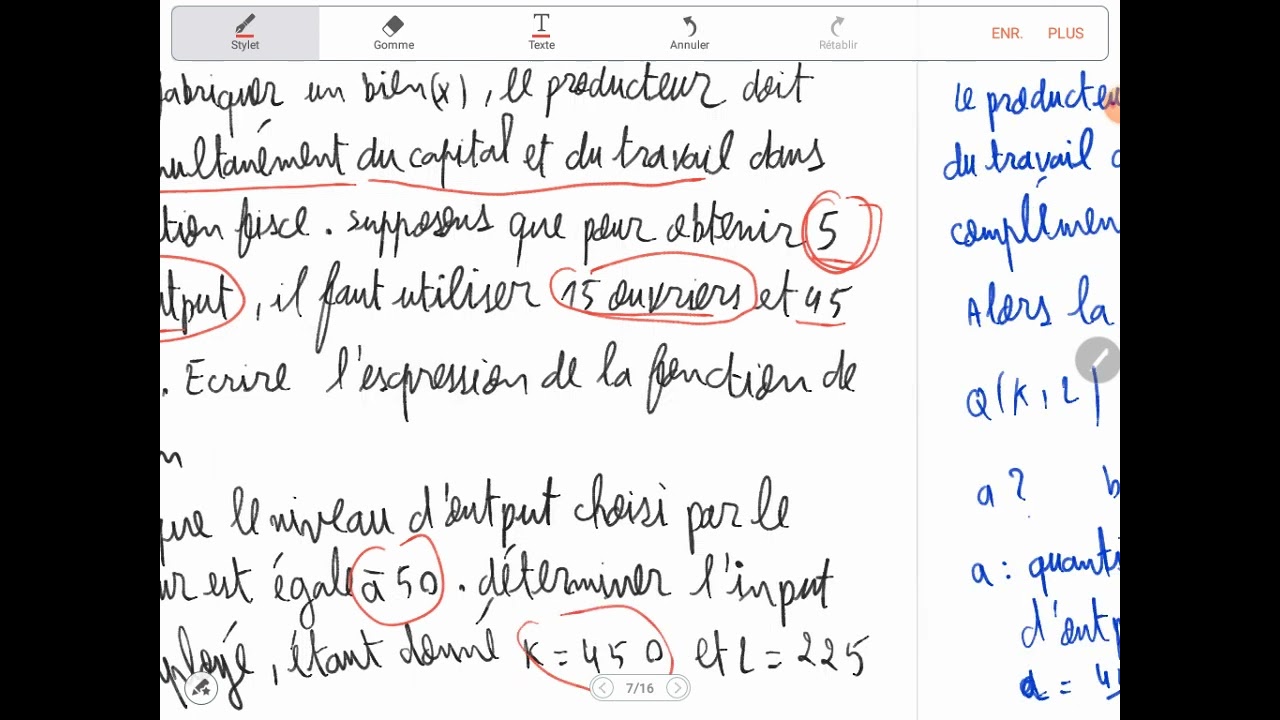 Stylet Gomme Texte Annuler Rétablir ENR. PLUS
fabriquer un bien(x), le producteur doit
multanément du capital et du travail dans
tion fisce. supposons que pour obtenir 5
utput, il faut utiliser 15 ouvriers et 45
. Ecrire l'expression de la fonction de
n
que le niveau d'output choisi par le
ur est égale à 50. déterminer l'input
ployé, étant donné K = 450 et L = 225
le producteu
du travail d
complémen
Alors la
Q(K, L)
a ? b
a : quanti
d'outp
a = 45
7/16